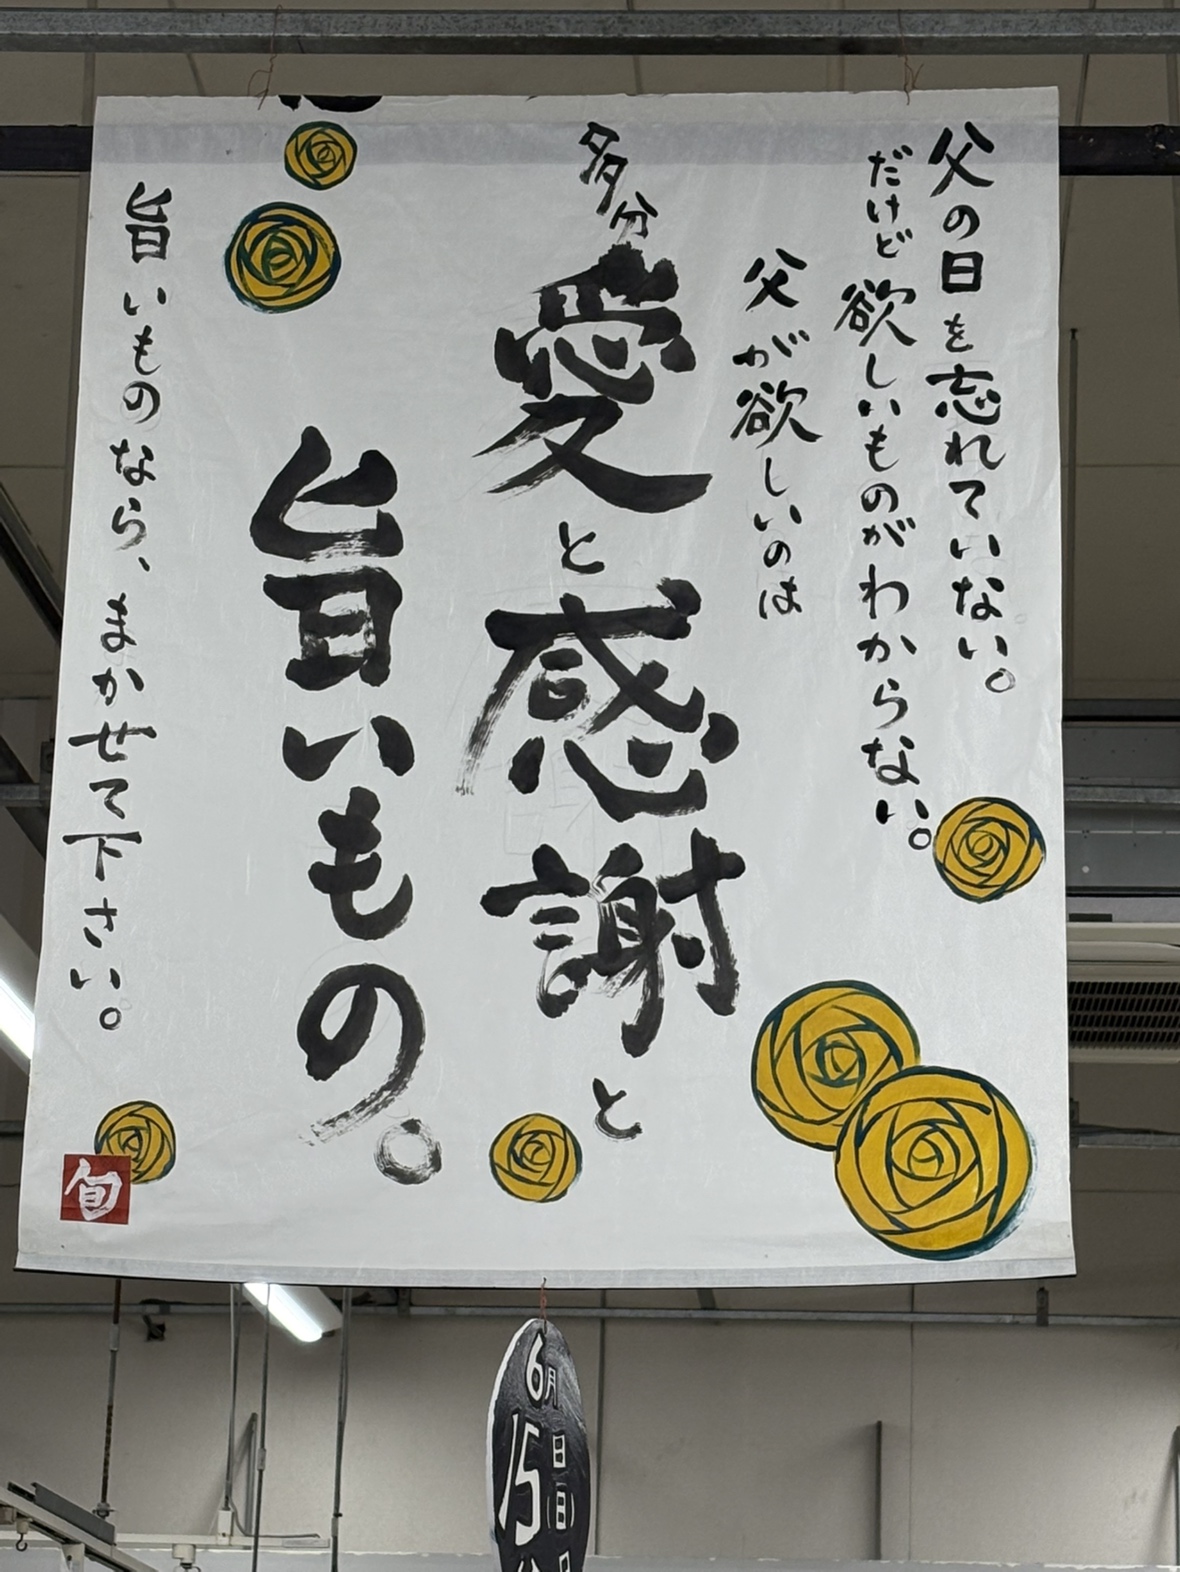 父の日を忘れていない。
だけど欲しいものがわからない。
父が欲しいのは
多分
愛と感謝と
旨いもの。
旨いものなら、まかせて下さい。
旬
6月
15日(日)